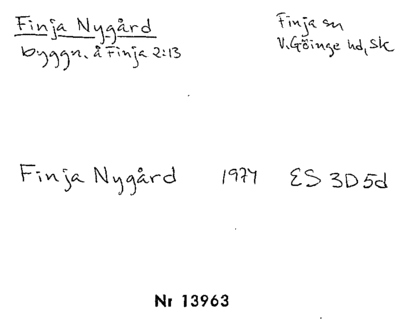 Finja Nygård
byggn. å Finja 2:13
Finja sn
V. Göinge hd, Sk
Finja Nygård 1974 ES 3D5d
Nr 13963